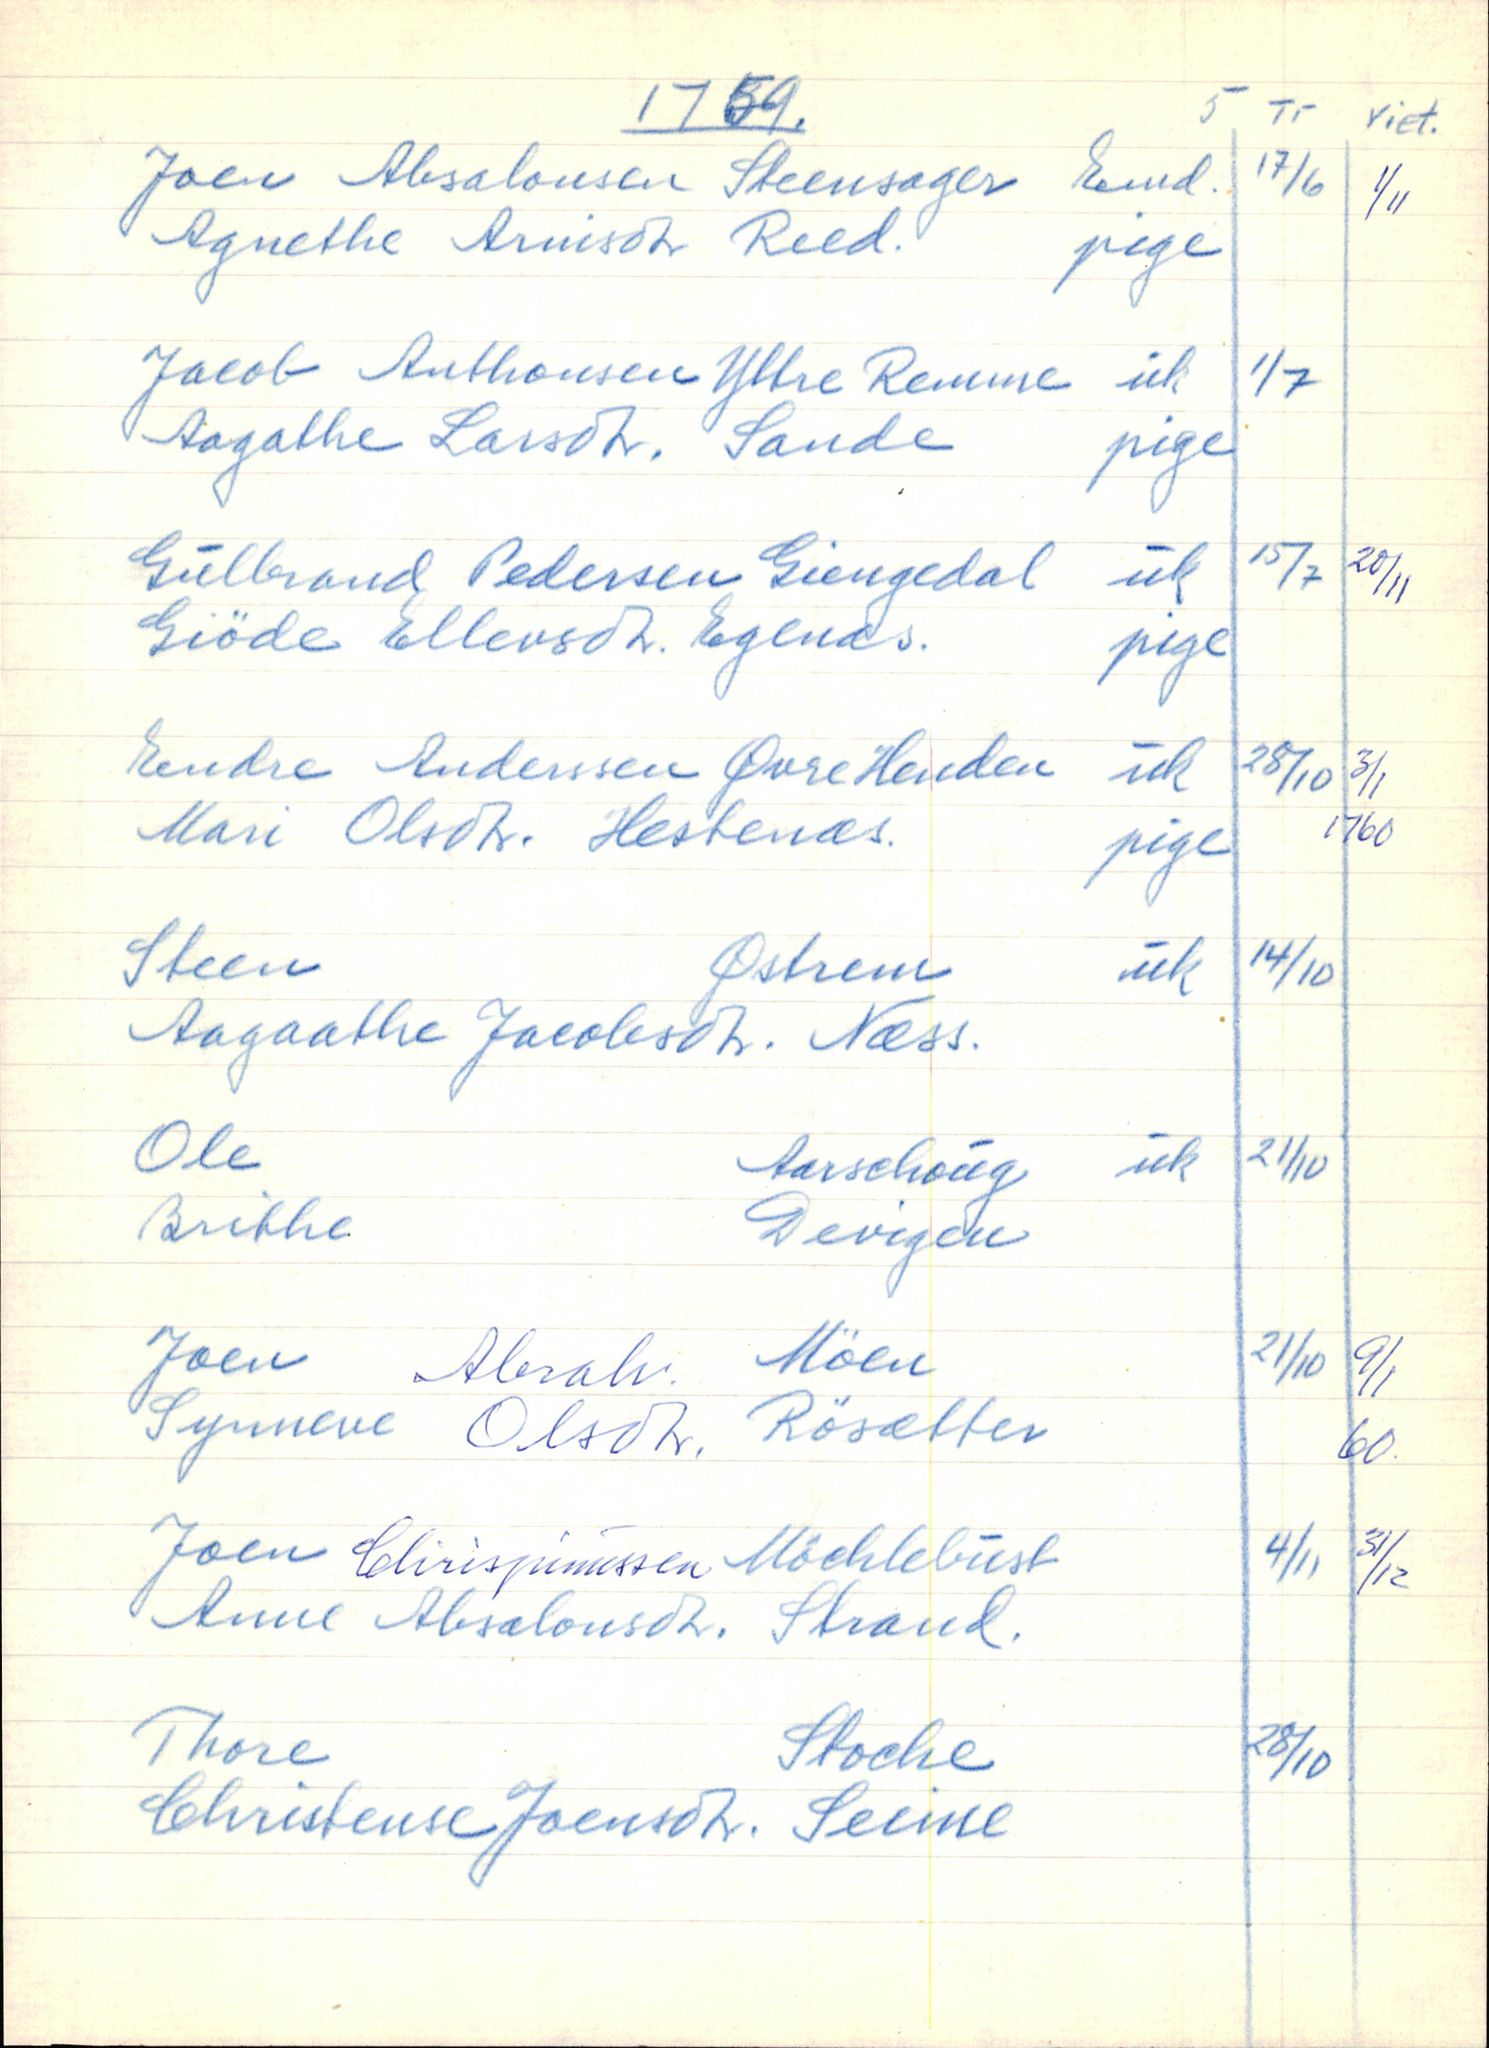 1759. 5 Tr Viet.
Joen Absalonsen Steensager Emd. 17/6 1/11
Agnethe Arnisdtr Reed. pige
Jacob Anthonsen Yttre Remme uk 1/7
Aagathe Larsdtr. Sande pige
Gŭlbrand Pedersen Giengedal ŭk 15/7 20/11
Giöde Ellevsdtr. Egenæs. pige
Endre Anderssen Øvre Henden ŭk 28/10 3/1
Mari Olsdtr. Hestenæs. pige 1760
Steen Østrem ŭk 14/10
Aagaathe Jacobsdtr. Næss.
Ole Aarschoŭg ŭk 21/10
Brithe Devigen
Joen Abrah. Möen 21/10 9/1
Synneve Olsdtr. Rösætter 60.
Joen Chrispinussen Möchlebŭst 4/11 31/12
Anne Absalonsdtr. Strand.
Thore Stoche 28/10
Christense Joensdtr. Seime